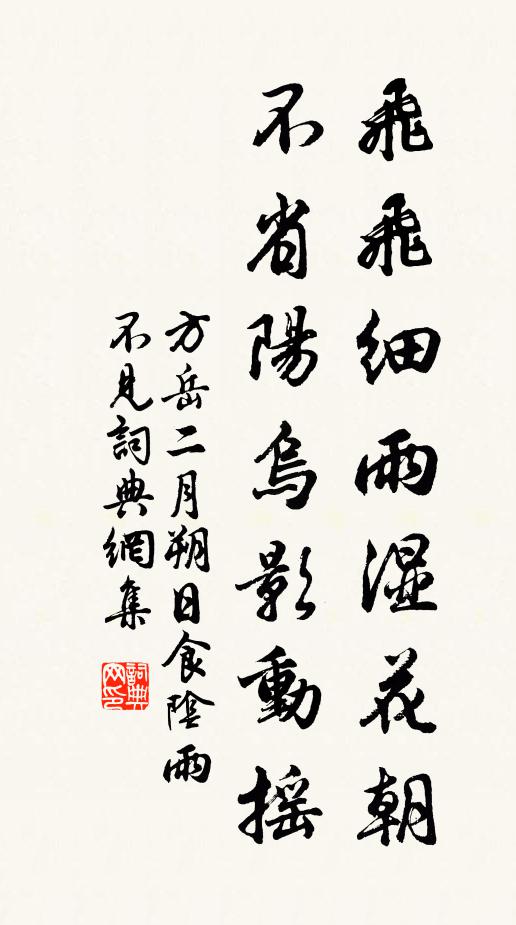 飛飛細雨湿花朝
不省陽烏影動摇
方岳二月朔日食陰雨
不見詞典網集
詞典網印